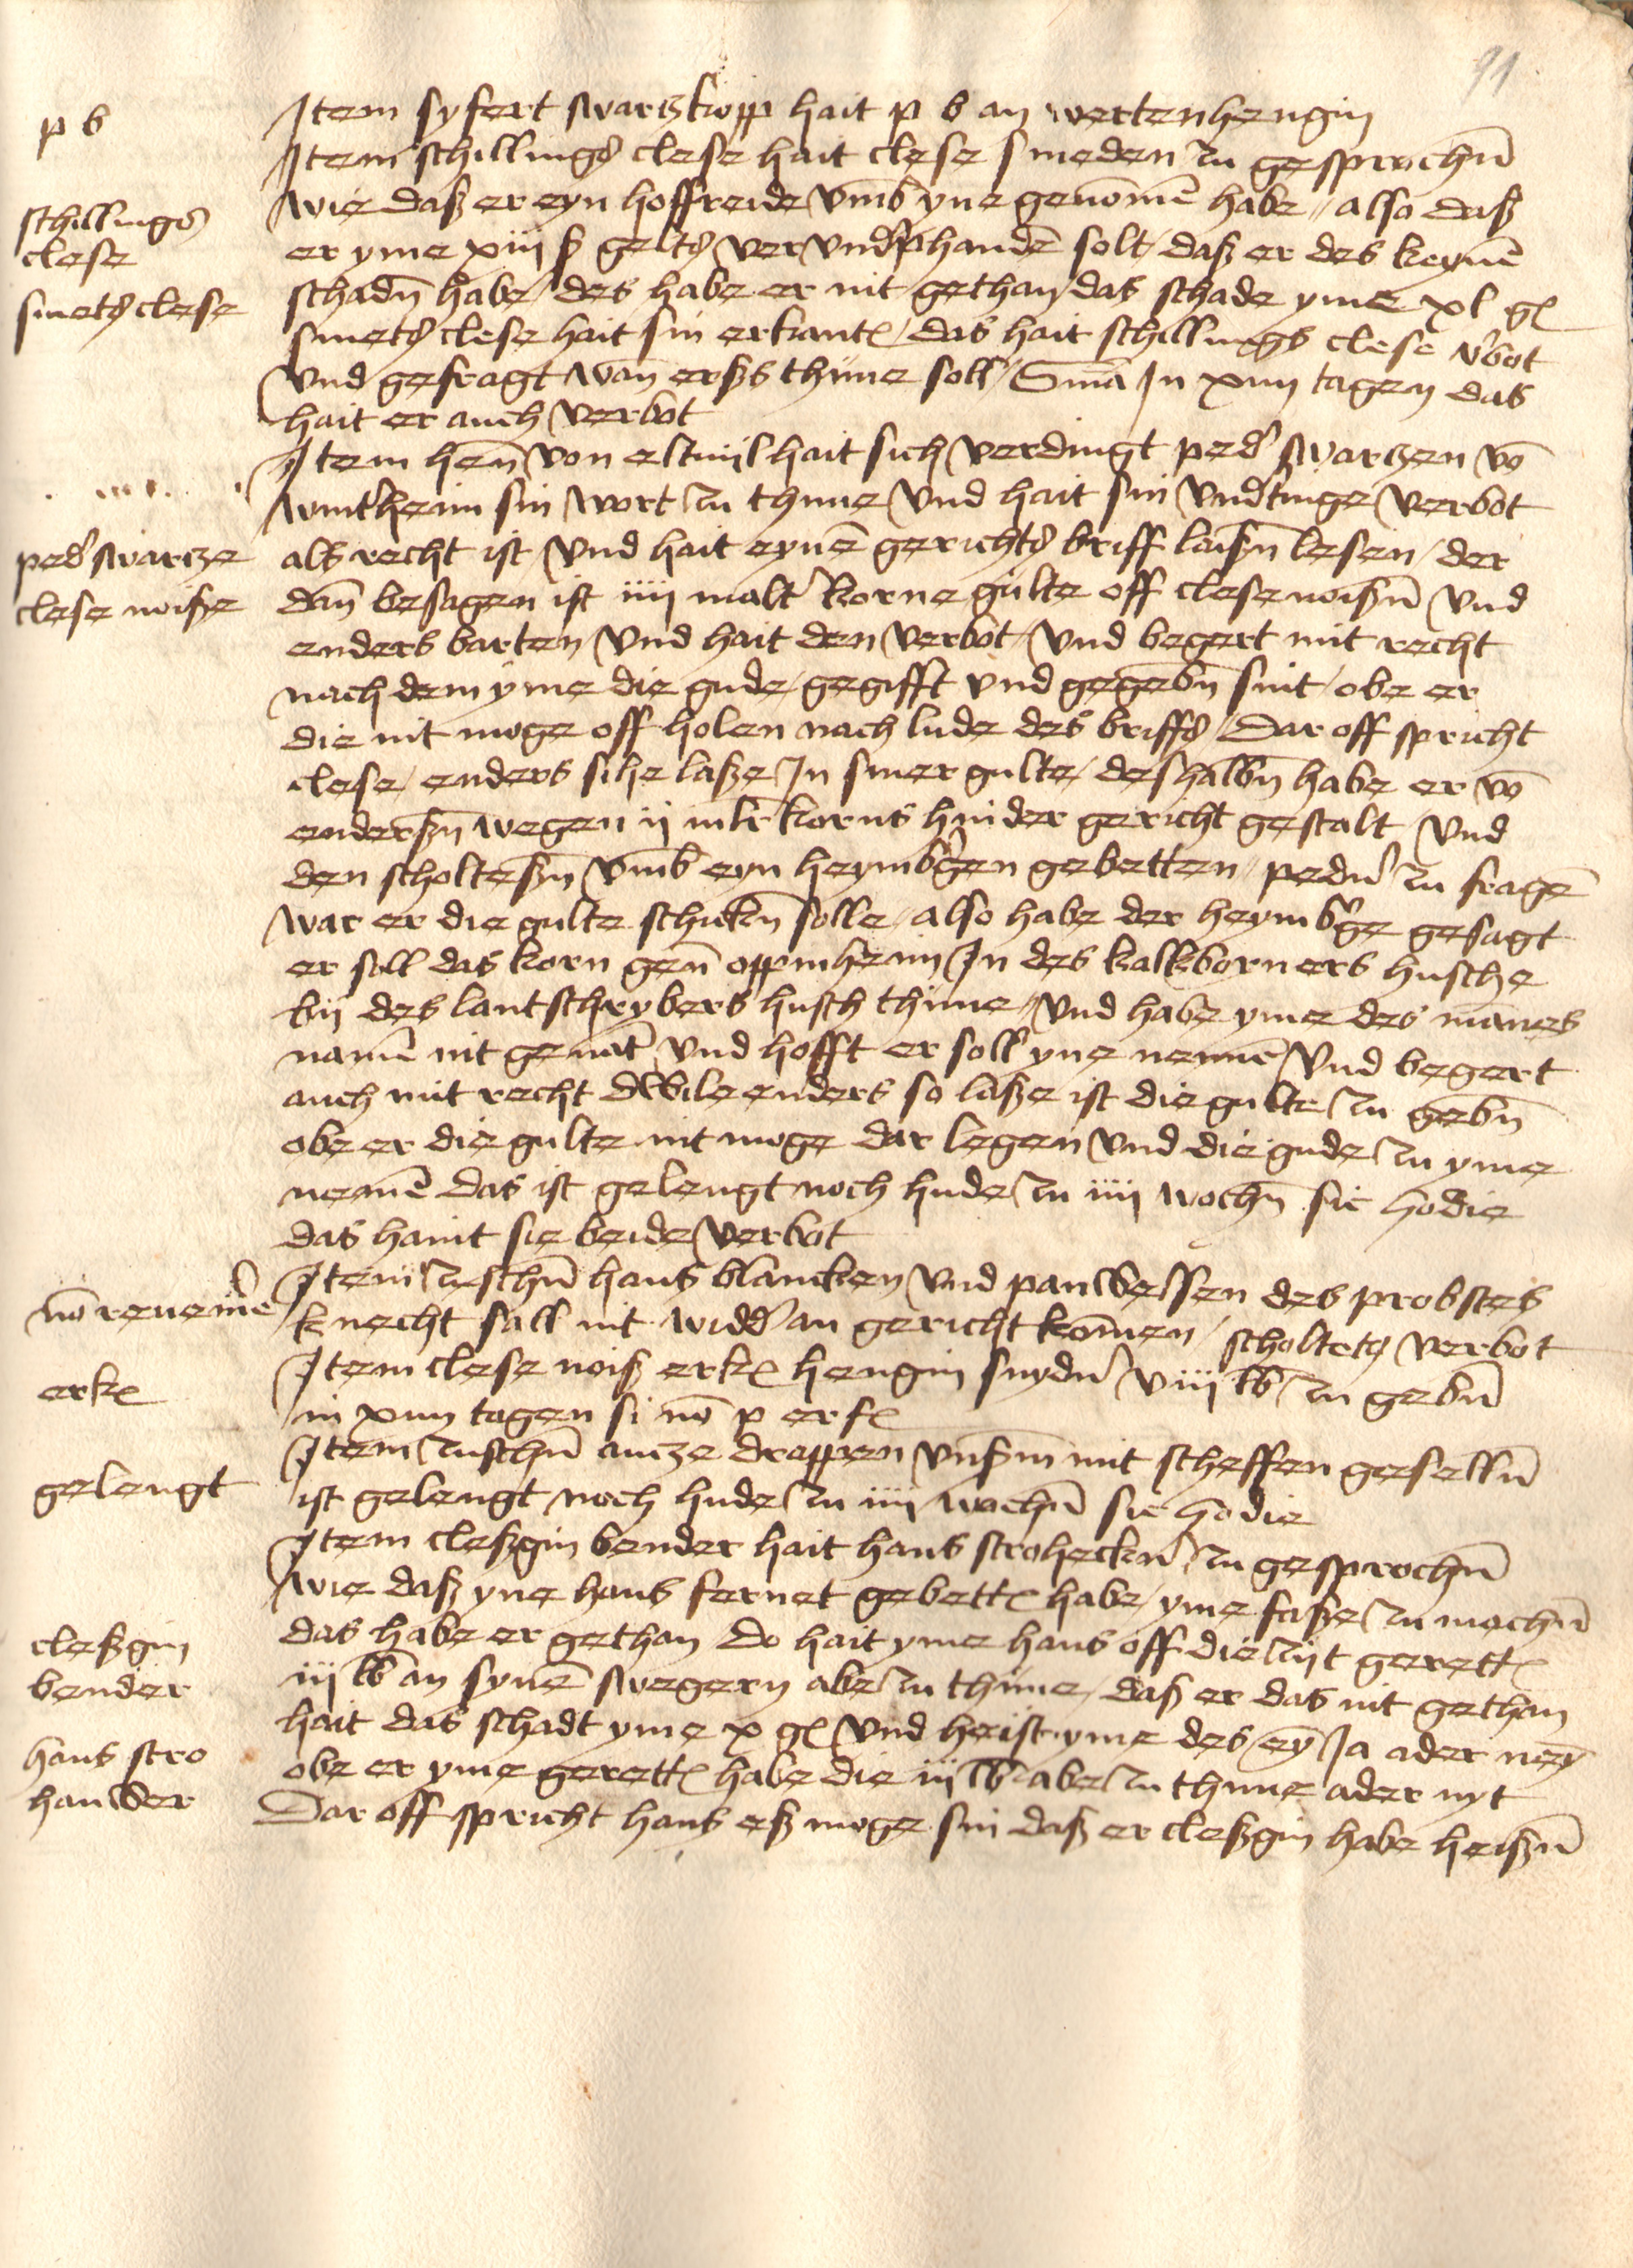 91
p b
Item syfert swartzkopp hait p b an wertenhengin
Item schillings clese hait clese smeden zu gesprochn̄
schillings
clese
smets clese
wie daß er eyn hoffreide vmb yne genom̄en habe // also daß
er yme xiij ß gelts ver vnd'phanden̄ solt / daß er des keynē
schadn̄ habe / des habe er nit gethan das schade yme xl gl
smets clese hait sin erkant / das hait schillings clese v'bot
vnd gefragt wan̄ erßs thune soll / Sm̄a In xiiij tagen das
hait er auch verbot
Item hen̄ von eltuil hait sich verdingt ped' swartzen vō
wint'heim sin wort zu thune vnd hait sin vnd'tinge verbot
ped' swartze
clese noiße
als recht ist vnd hait eynē gerichts briff laißn̄ lesen / der
dan̄ besagen ist iiij malt' korne gulte off clese noißn̄ vnd
enders barten vnd hait den verbot / vnd begert mit recht
nach dem yme die gude / gegifft vnd gegebn̄ sint / obe er
die nit moge off holen nach lude des briffs / Dar off spricht
clese / enders sihe laße In siner gulte / deshalbn̄ habe er vō
enderßn̄ wegen ij mlr korns hinder gericht gestalt vnd
den scholteßn̄ vmb eyn heymb'gen gebetten / pedn' zu fragē
war er die gulte schickn̄ solle / also habe der heymb'ge gesagt
er soll das korn gen̄ oppinheim In des kalkborners husche
bij des lantschrybers husch thune // vnd habe yme des man̄es
namē nit genāt vnd hofft er soll yne nen̄nē vnd begert
auch mit recht dwile enders so laße ist die gulte zu gebn̄
obe er die gulte nit moge dar legen vnd die gude zu yme
nemē das ist gelengt noch hude zu iiij wochn̄ sic hodie
das haint sie beide verbot
nō reuenire
Item zuschn̄ hans blancken vnd panwelsen des probstes
knecht sall nit widd' an gericht kom̄en / scholtets verbot
erk
Item clese noiß erk hengin snydn' viij lb zu gebn̄
in xiiij tagen si nō p erf
gelengt
Item zuschn̄ antze drappen vnßm̄ mit scheffen geselln̄
ist gelengt noch hude zu iiij wochn̄ sic hodie
Item cleßgin bender hait hans stroheckn̄ zu gesprochn̄
wie daß yne hans fernet gebett habe / yme faße zu machn̄
cleßgin
bender
das habe er gethan Do hait yme hans off die zijt gerett
iij lb an synē swegern abe zu thune / daß er das nit gethan
hans stro
hauwer
hait das schadt yme x gl vnd heist yme des eȳ Ja ader neȳ
obe er yme gerett habe die iij lb abe zu thune ader nyt
Dar off spricht hans eß moge sin daß er cleßgin habe heißn̄